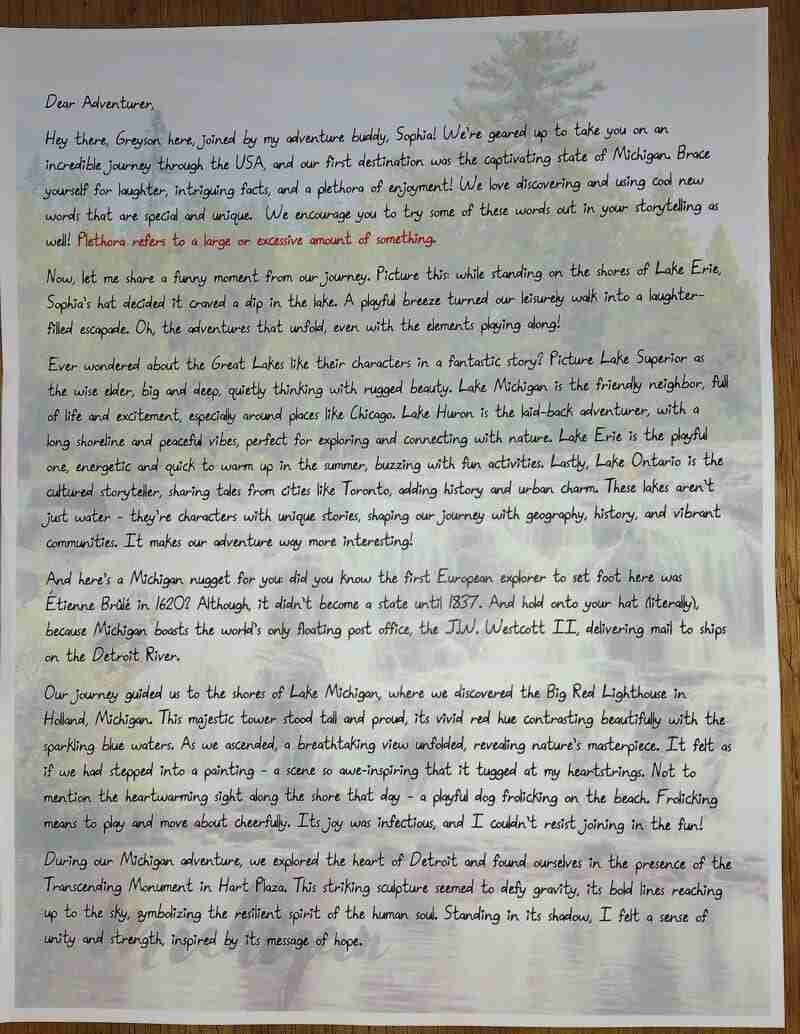 Dear Adventurer,
Hey there, Greyson here, joined by my adventure buddy, Sophia! We're geared up to take you on an
incredible journey through the USA, and our first destination was the captivating state of Michigan. Brace
yourself for laughter, intriguing facts, and a plethora of enjoyment! We love discovering and using cool new
words that are special and unique. We encourage you to try some of these words out in your storytelling as
well! Plethora refers to a large or excessive amount of something.
Now, let me share a funny moment from our journey. Picture this: while standing on the shores of Lake Erie,
Sophia's hat decided it craved a dip in the lake. A playful breeze turned our leisurely walk into a laughter-
filled escapade. Oh, the adventures that unfold, even with the elements playing along!
Ever wondered about the Great Lakes like their characters in a fantastic story? Picture Lake Superior as
the wise elder, big and deep, quietly thinking with rugged beauty. Lake Michigan is the friendly neighbor, full
of life and excitement, especially around places like Chicago. Lake Huron is the laid-back adventurer, with a
long shoreline and peaceful vibes, perfect for exploring and connecting with nature. Lake Erie is the playful
one, energetic and quick to warm up in the summer, buzzing with fun activities. Lastly, Lake Ontario is the
cultured storyteller, sharing tales from cities like Toronto, adding history and urban charm. These lakes aren't
just water - they're characters with unique stories, shaping our journey with geography, history, and vibrant
communities. It makes our adventure way more interesting!
And here's a Michigan nugget for you: did you know the first European explorer to set foot here was
Étienne Brûlé in 1620? Although, it didn't become a state until 1837. And hold onto your hat (literally),
because Michigan boasts the world's only floating post office, the J.W. Westcott II, delivering mail to ships
on the Detroit River.
Our journey guided us to the shores of Lake Michigan, where we discovered the Big Red Lighthouse in
Holland, Michigan. This majestic tower stood tall and proud, its vivid red hue contrasting beautifully with the
sparkling blue waters. As we ascended, a breathtaking view unfolded, revealing nature's masterpiece. It felt as
if we had stepped into a painting - a scene so awe-inspiring that it tugged at my heartstrings. Not to
mention the heartwarming sight along the shore that day - a playful dog frolicking on the beach. Frolicking
means to play and move about cheerfully. Its joy was infectious, and I couldn't resist joining in the fun!
During our Michigan adventure, we explored the heart of Detroit and found ourselves in the presence of the
Transcending Monument in Hart Plaza. This striking sculpture seemed to defy gravity, its bold lines reaching
up to the sky, symbolizing the resilient spirit of the human soul. Standing in its shadow, I felt a sense of
unity and strength, inspired by its message of hope.